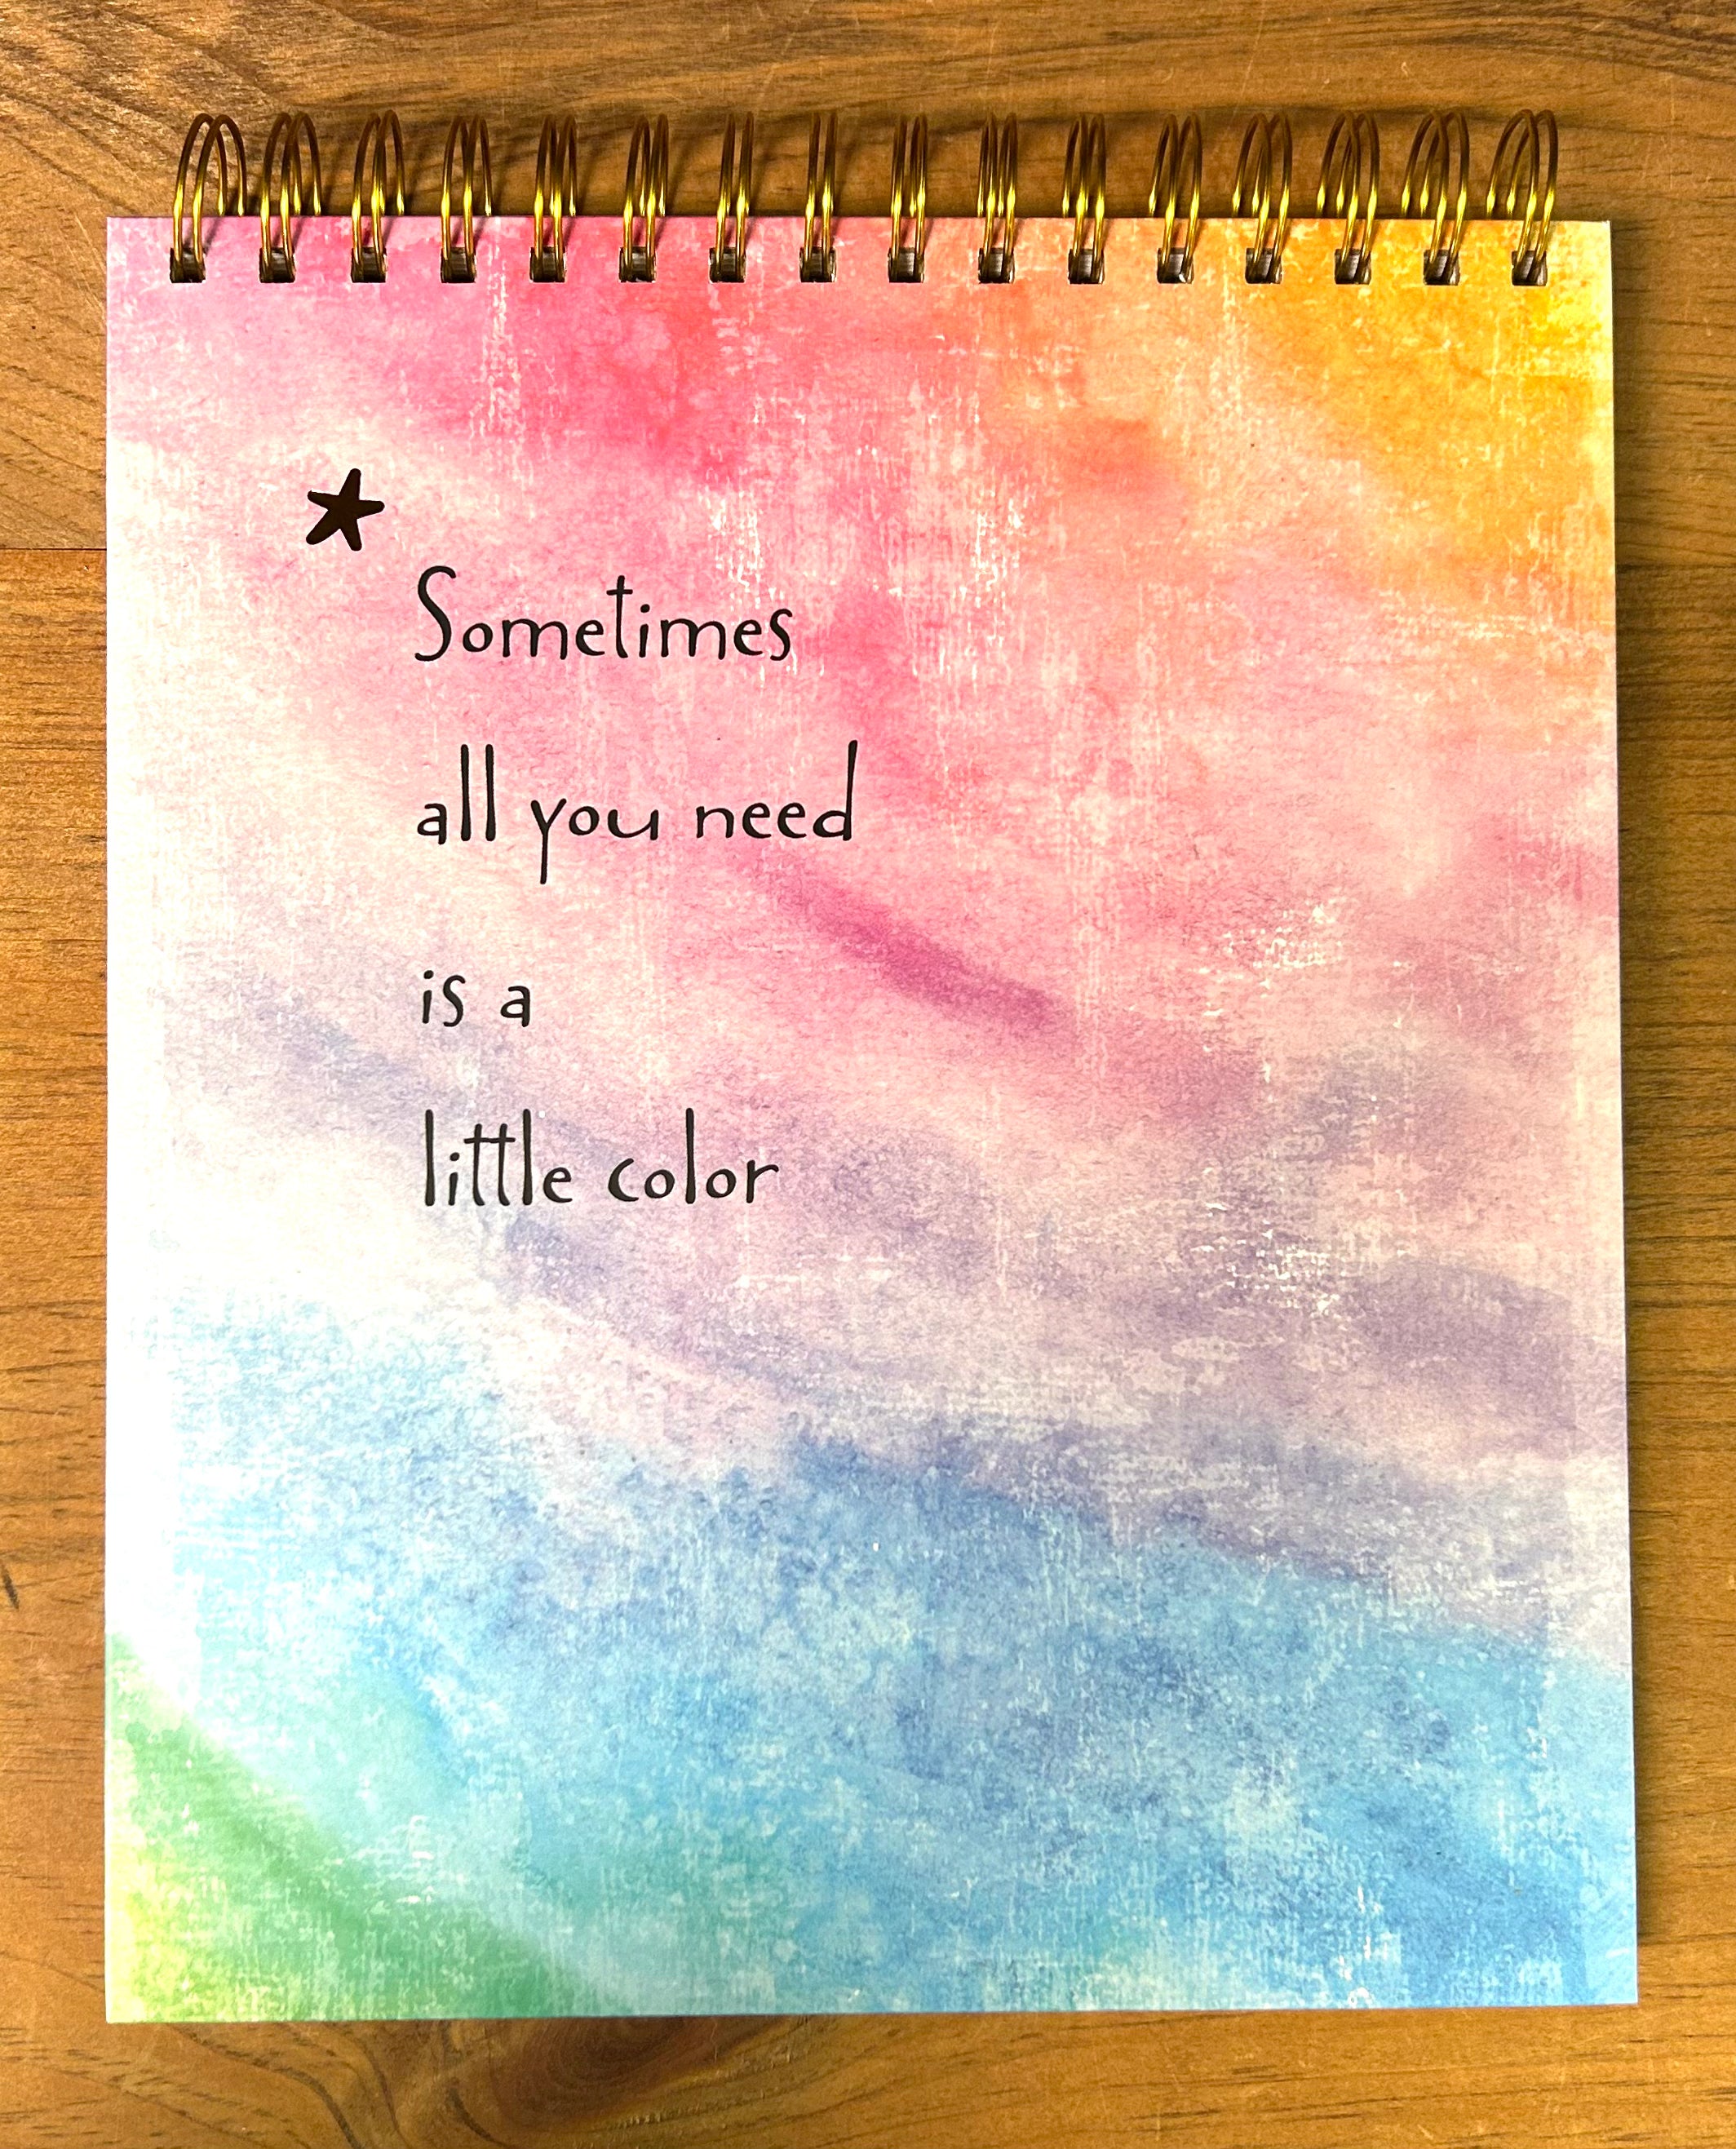 Sometimes
all you need
is a
little color